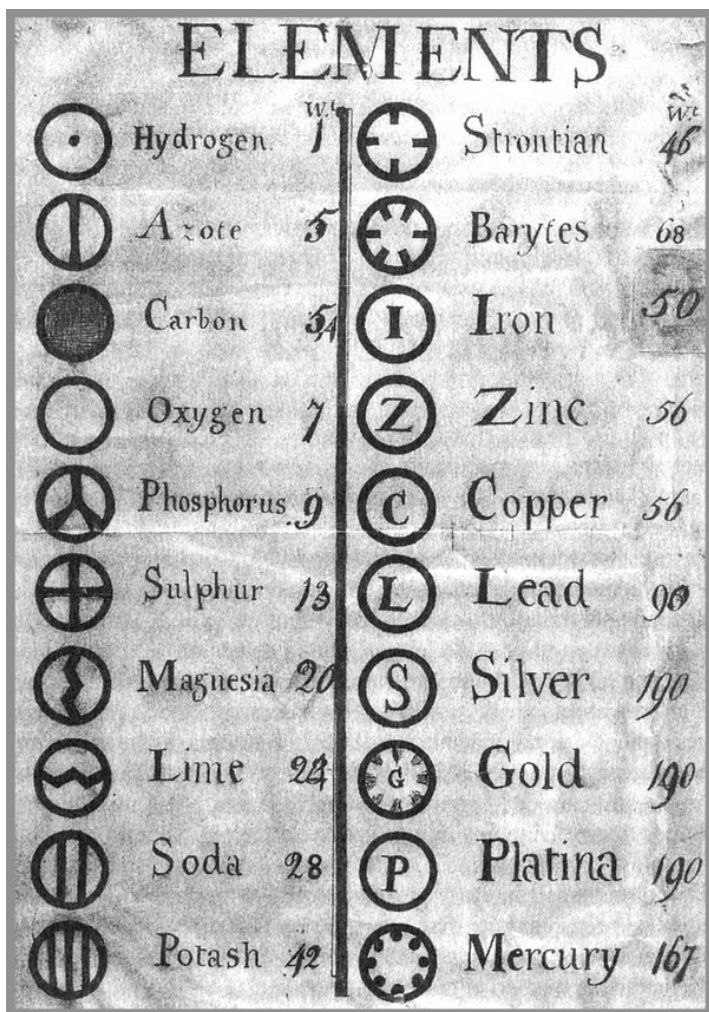 ELEMENTS
Wt
Hydrogen. 1
Azote 5
Carbon 5,4
Oxygen 7
Phosphorus 9
Sulphur 13
Magnesia 20
Lime 24
Soda 28
Potash 42
Wt
Strontian 46
Barytes 68
I Iron 50
Z Zinc 56
C Copper 56
L Lead 90
S Silver 190
G Gold 190
P Platina 190
Mercury 167